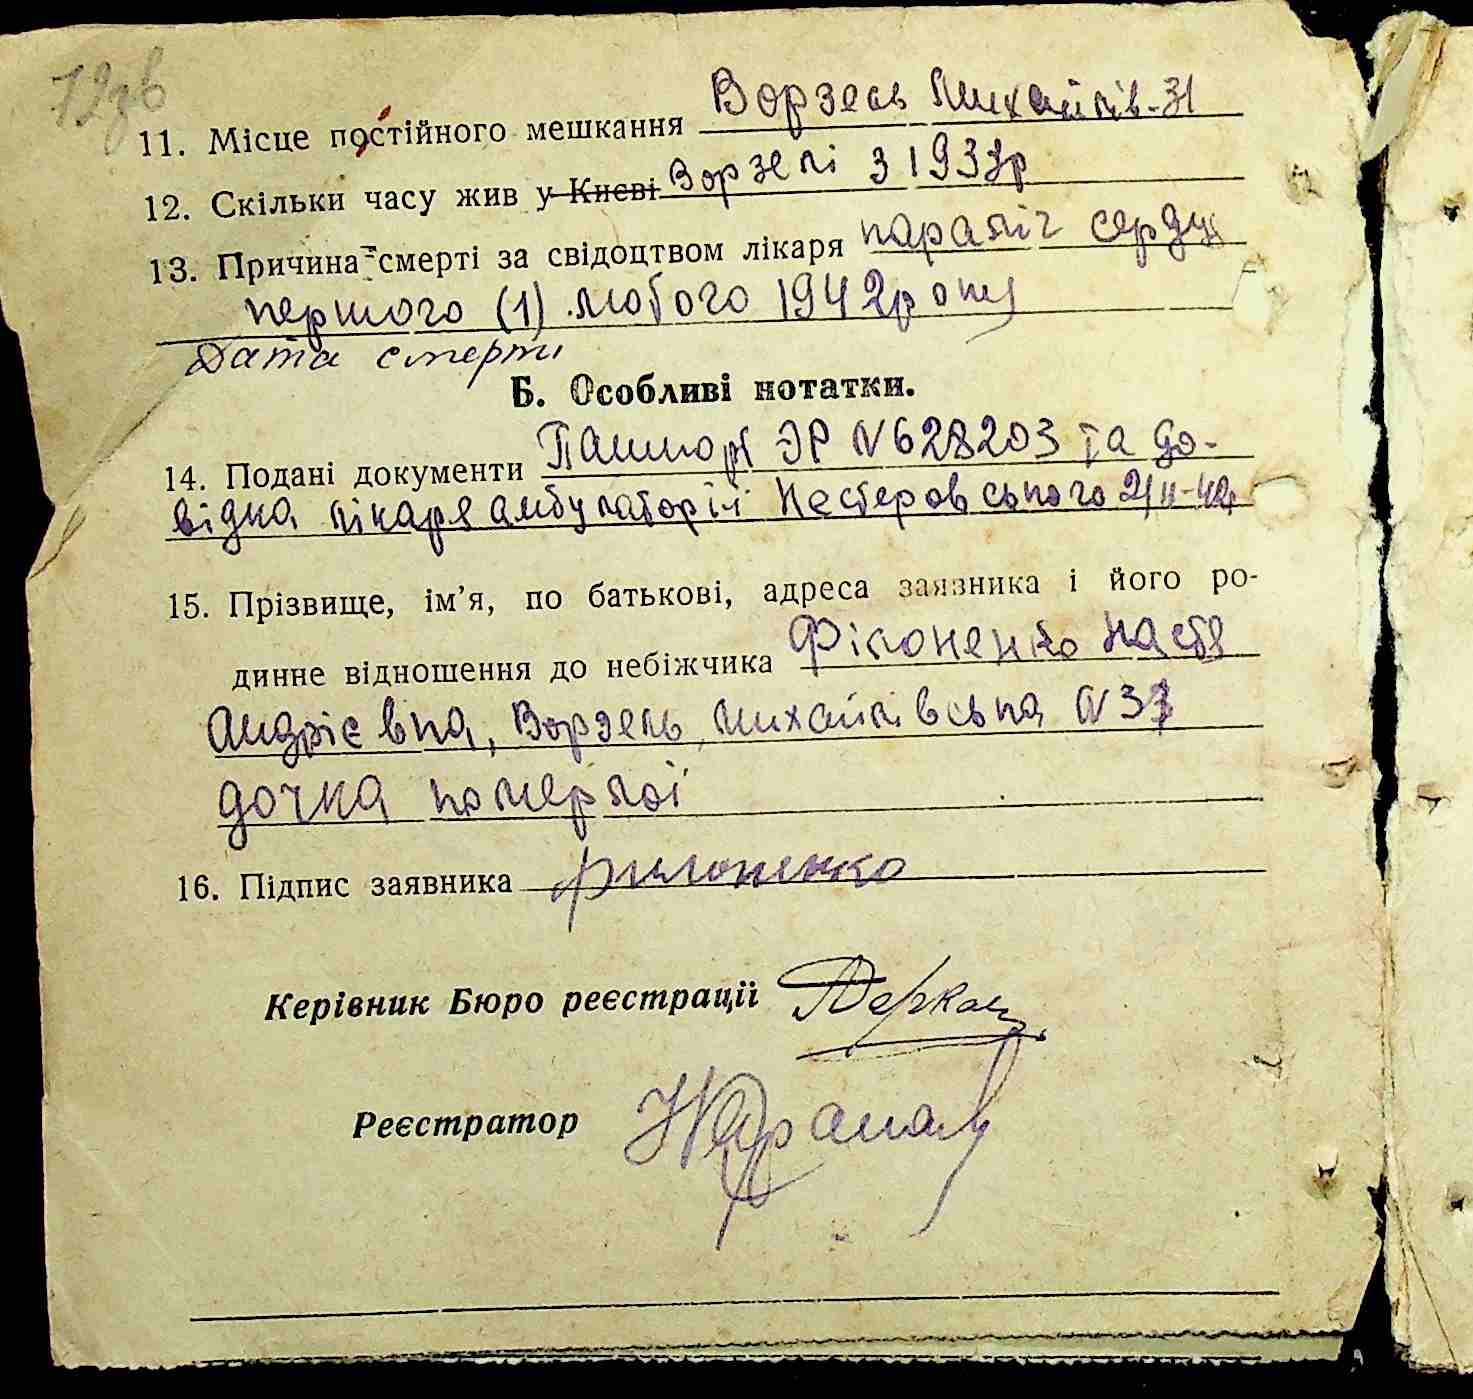 12зв
11. Місце постійного мешкання Ворзель Михайлів-31
12. Скільки часу жив у Києві Ворзелі з 1933р
13. Причина смерті за свідоцтвом лікаря параліч серця
першого (1) лютого 1942 року
Дата смерти
Б. Особливі нотатки.
14. Подані документи Пашпорт ЭР N 628203 та до-
відка лікаря амбулаторії Нестеровського 2/II-42
15. Прізвище, ім’я, по батькові, адреса заявника і його ро-
динне відношення до небіжчика Філоненко Настя
Андрієвна, Ворзель, Михайлівська N 31
дочка померлої
16. Підпис заявника Филоненко
Керівник Бюро реєстрації Деркач
Реєстратор